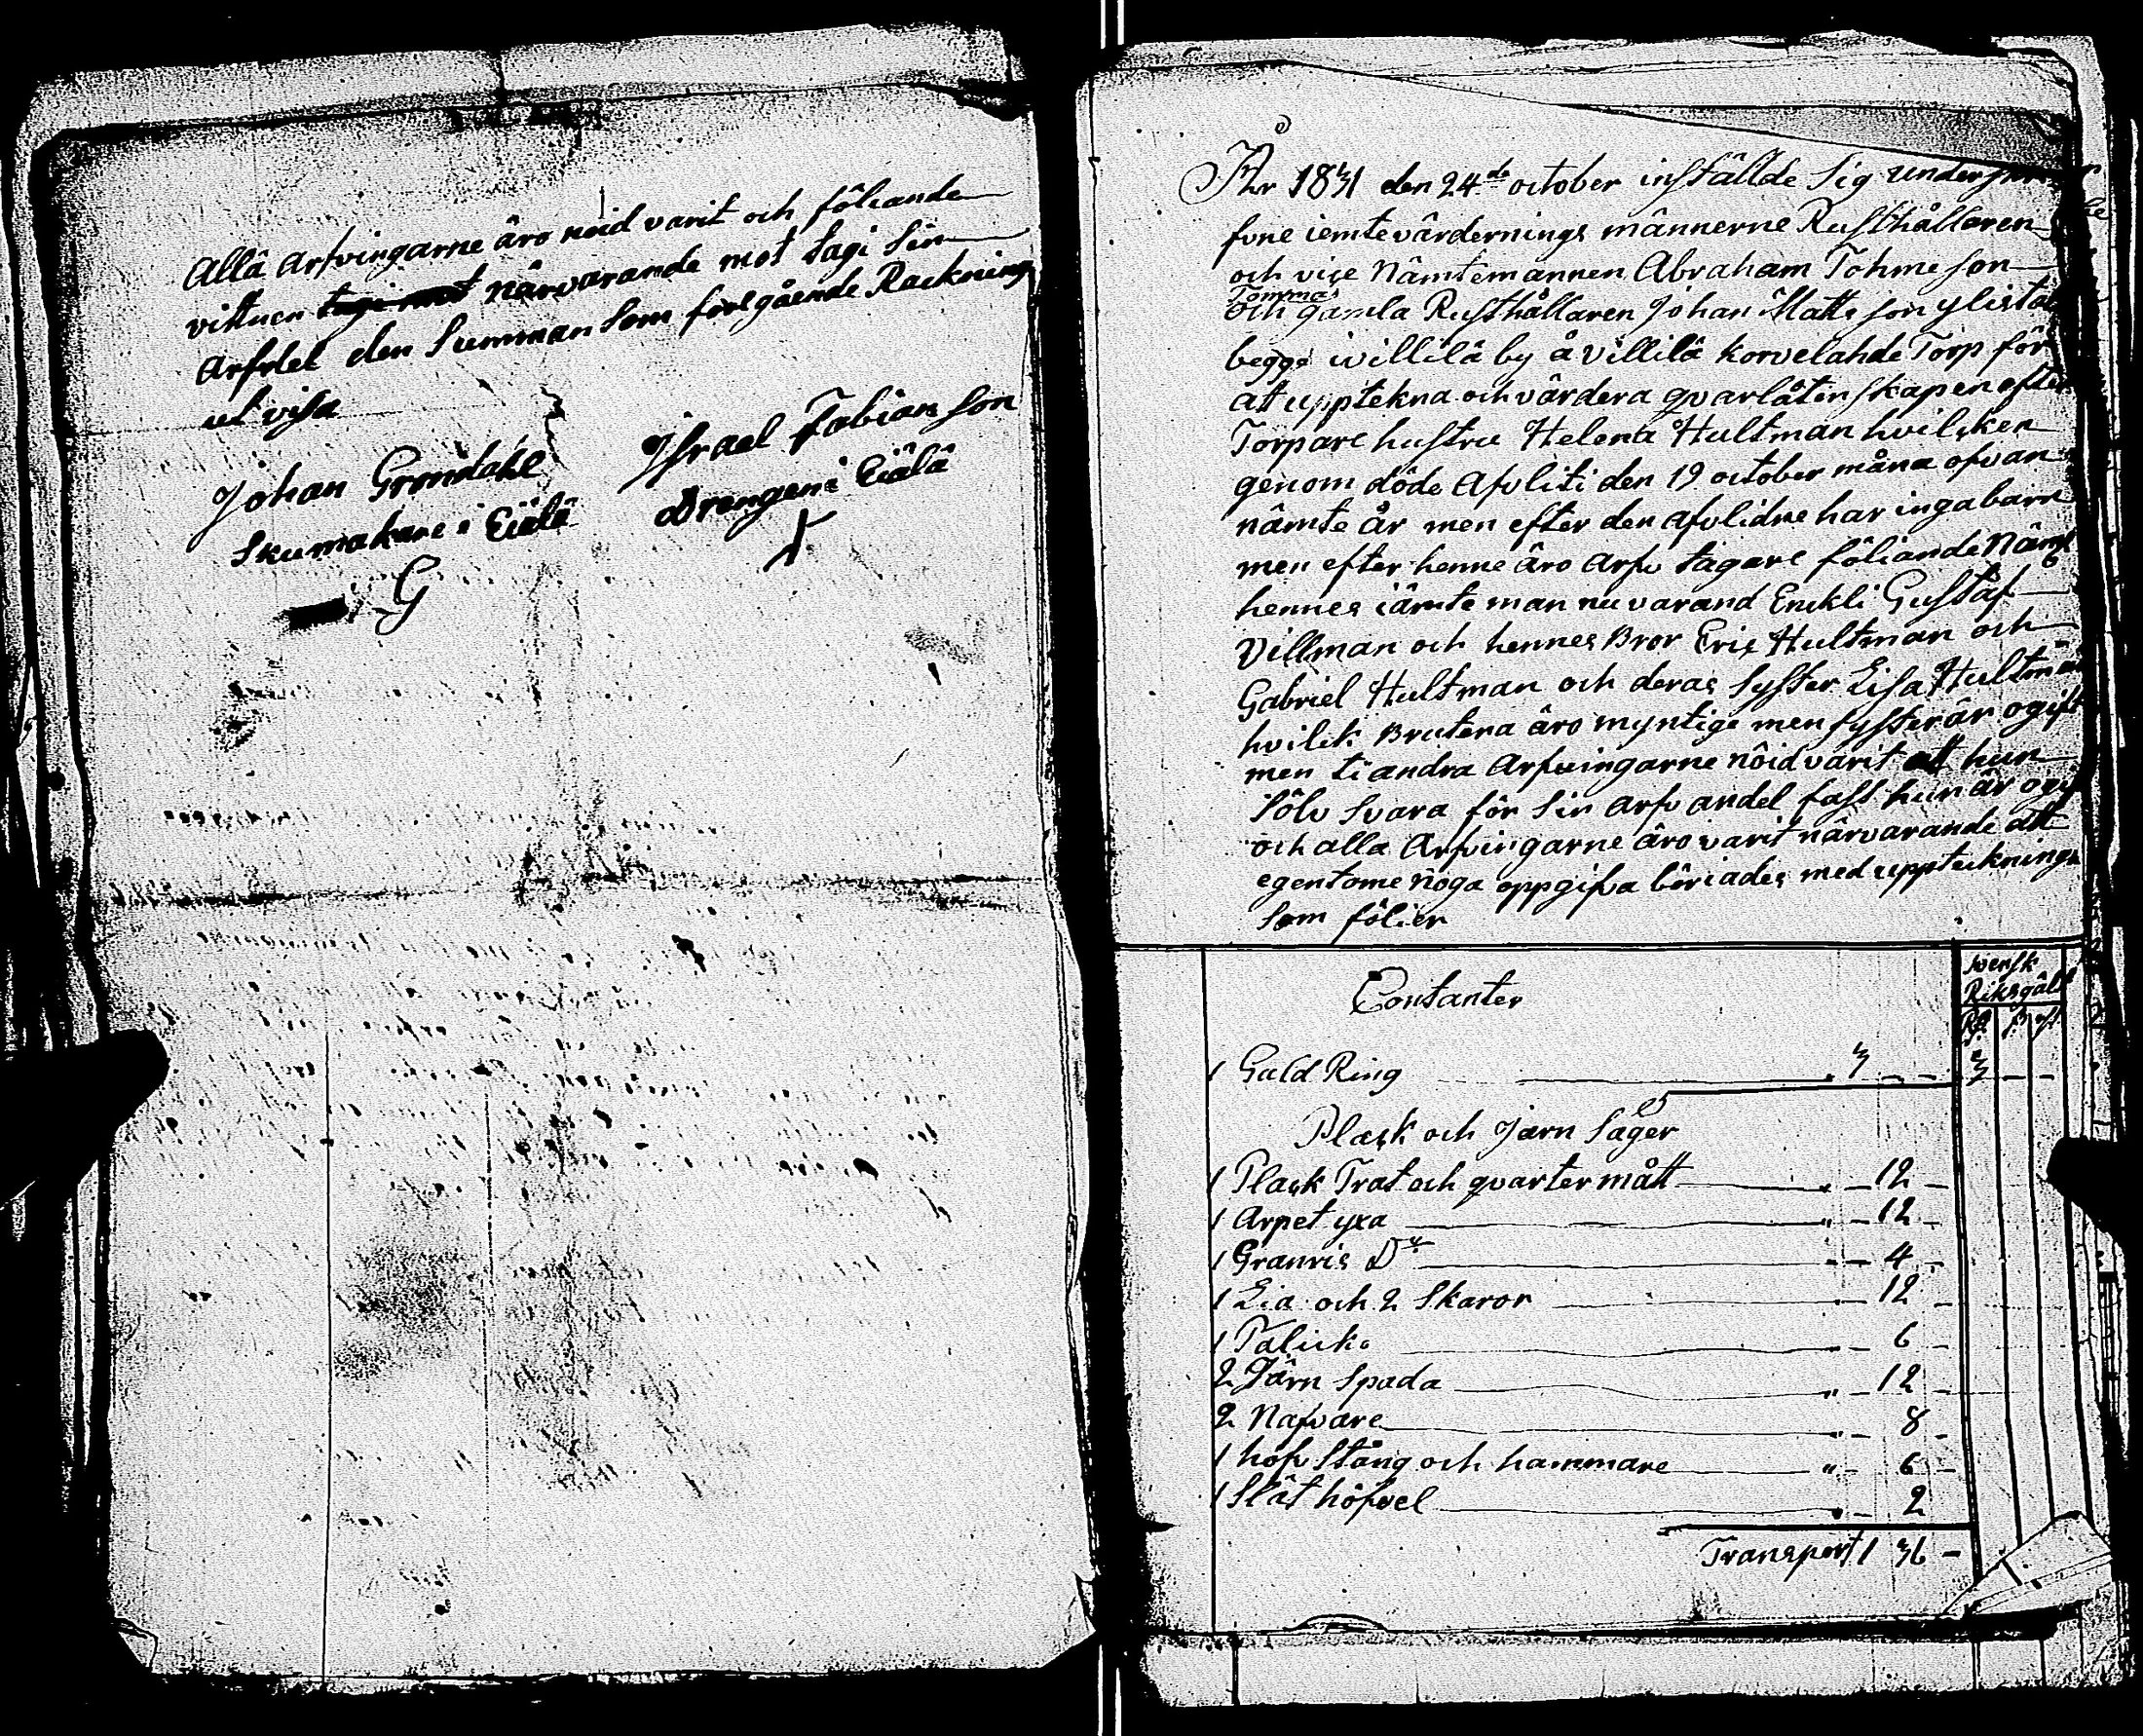 Allä Arfvingarne äro nöid varit och föliande
vittnen närvarande mot tagi Sin
Arfdel den Summan Som föregående Räckning
ut visa
Johan Gröndahl
Skumakare i Eiälä
G
Israel Fabian son
Drengen i Eiälä
År 1831 den 24de october inställde Sig
fvne iemte värdernings männerne Rusthållaren
och vice Nämtemannen Abraham Tohmeson
Tommas
och gamla Rusthållaren Johan Mattsson
begge i villilä by å Villilä Korvelahde Torp för
at upptekna och värdera qvarlåtenskapen efter
Torpare hustru Helena Hultman hvilcken
genom döde Afvliti den 19 october måna ofvan
nämte år men efter den afvlidne har inga barn
men efter henne äro Arfv tagare föliande Näml
hennes iämte man nu varand Enckli Gustaf
Villman och hennes Bror Eric Hultman och
Gabriel Hultman och deras Syster Lisa Hultman
hvilck Brutena äro myntige men syster är ogift
men ti andra Arfvingarne nöid varit att hun
Sölv Svara för Sin Arfv andel fast hun är
och alla Arfvingarne äro varit närvarande att
egentome noga oppgifva böriades med uppteckninga
Som fölier
Contanter
Svensk
Riksgäld
1 Guld Ring 3 3
Pläck och Jarn Sager
1 Pläck Trat och qvarter mått " - 12 -
1 Arpet yxa " - 12 -
1 Granris Do " - 4 -
1 Lia och 2 Skaror " - 12 -
1 Tälick " - 6 -
2 Järn Spada " - 12 -
2 Nafvare " - 8 -
1 höfv Stång och hammare " - 6 -
1 Slät höfvel " - 2
Transport 1 36 -